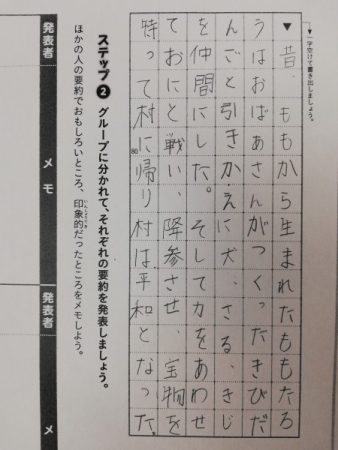 ▼一字空けて書き出しましょう。
▼昔、ももから生まれたももたろ
うはおばあさんがつくったきびだ
んごと引きかえに犬、さる、きじ
を仲間にした。そして力をあわせ
ておにと戦い、降参させ、宝物を
特って村に帰り村は平和となった。
80
ステップ2 グループに分かれて、それぞれの要約を発表しましょう。
ほかの人の要約でおもしろいところ、印象的だったところをメモしよう。
いんしょうてき
発表者
メモ
発表者
メ